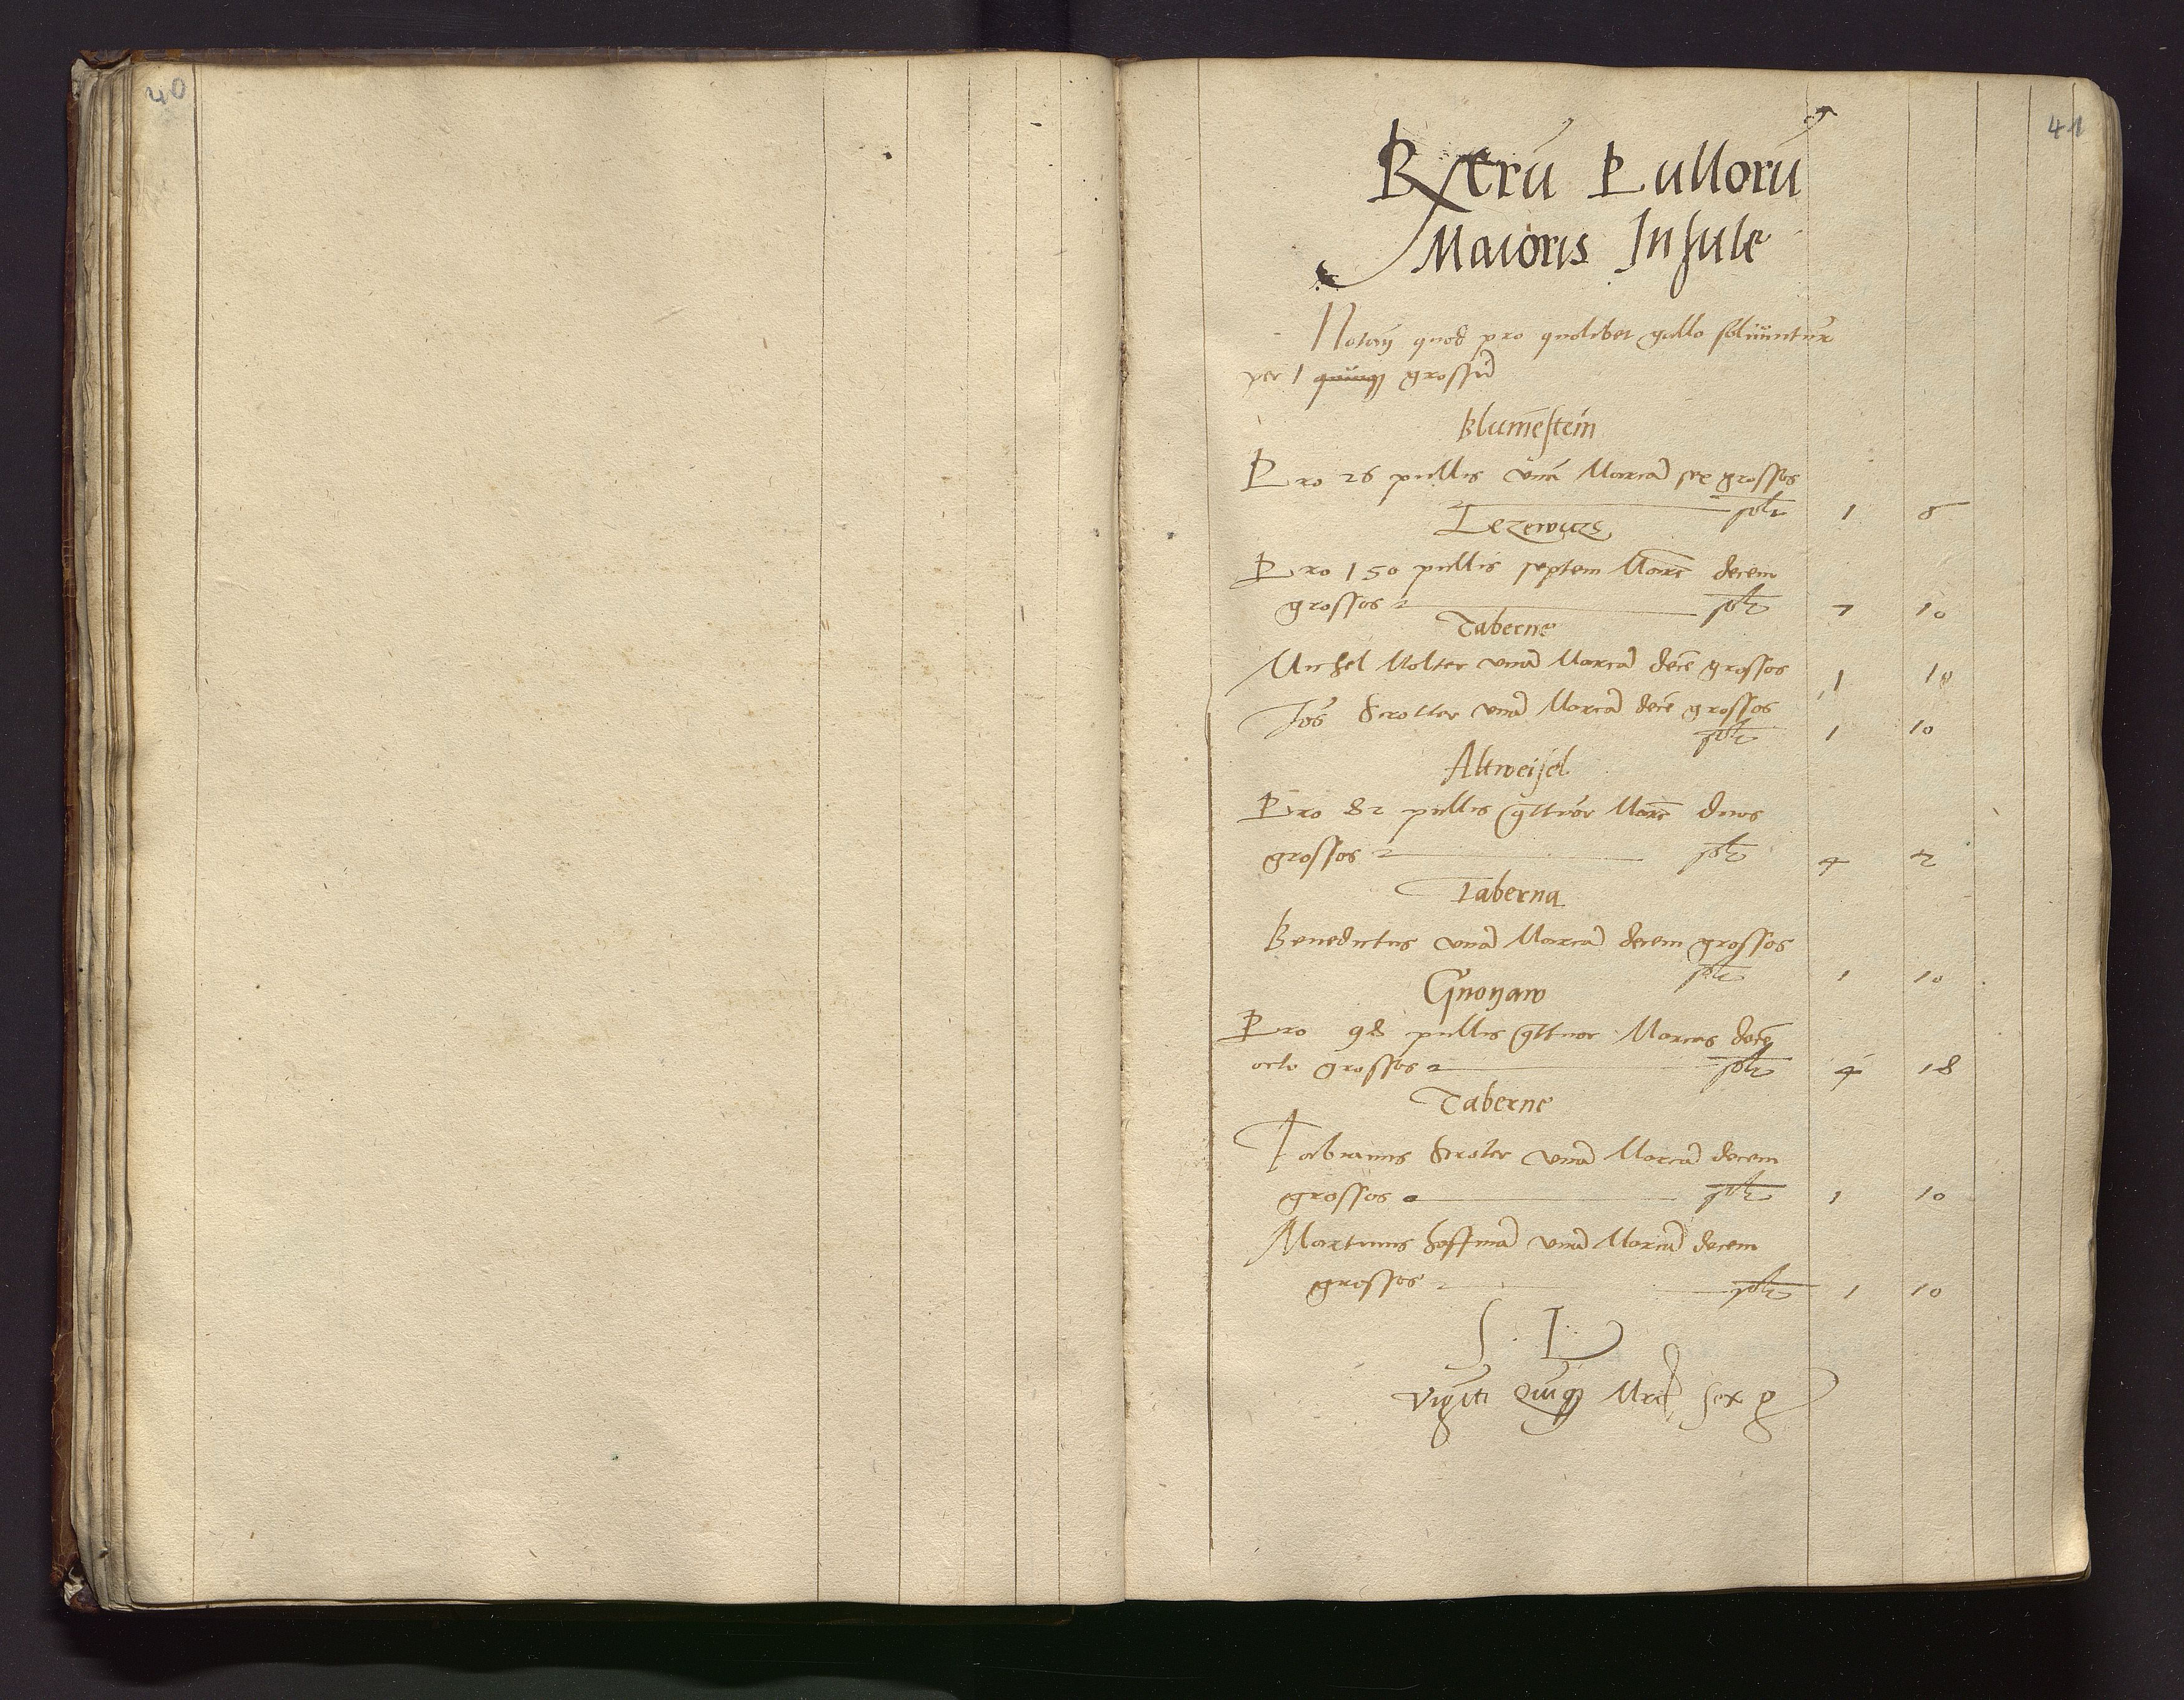 40
41
Rx Ceru Pulloru
Maioris Insule
Notan quod pro quolibet gallo soluuntur
per 1 quinq grossu
Blumestein
Pro 26 pullis una Marca sex grossos
solt 1 6
Lezewitz
Pro 150 pullis septem Marc decem
grossos solt 7 10
Taberne
Michel Molter una Marca dece grossos 1 10
Jos Scrotter una Marca dece grossos
solt 1 10
Altweijel
Pro 82 pullis qttuor Marc duos
grossos solt 4 2
Taberna
Benedictus una Marca decem grossos
solt 1 10
Gnoyaw
Pro 98 pullis qttuor Marcas dece
octo grossos solt 4 18
Taberne
Fabianus Scroter una Marca decem
grossos solt 1 10
Martinus hoffma una Marca decem
grossos solt 1 10
S. L
Viginti Quiq Mrc sex g